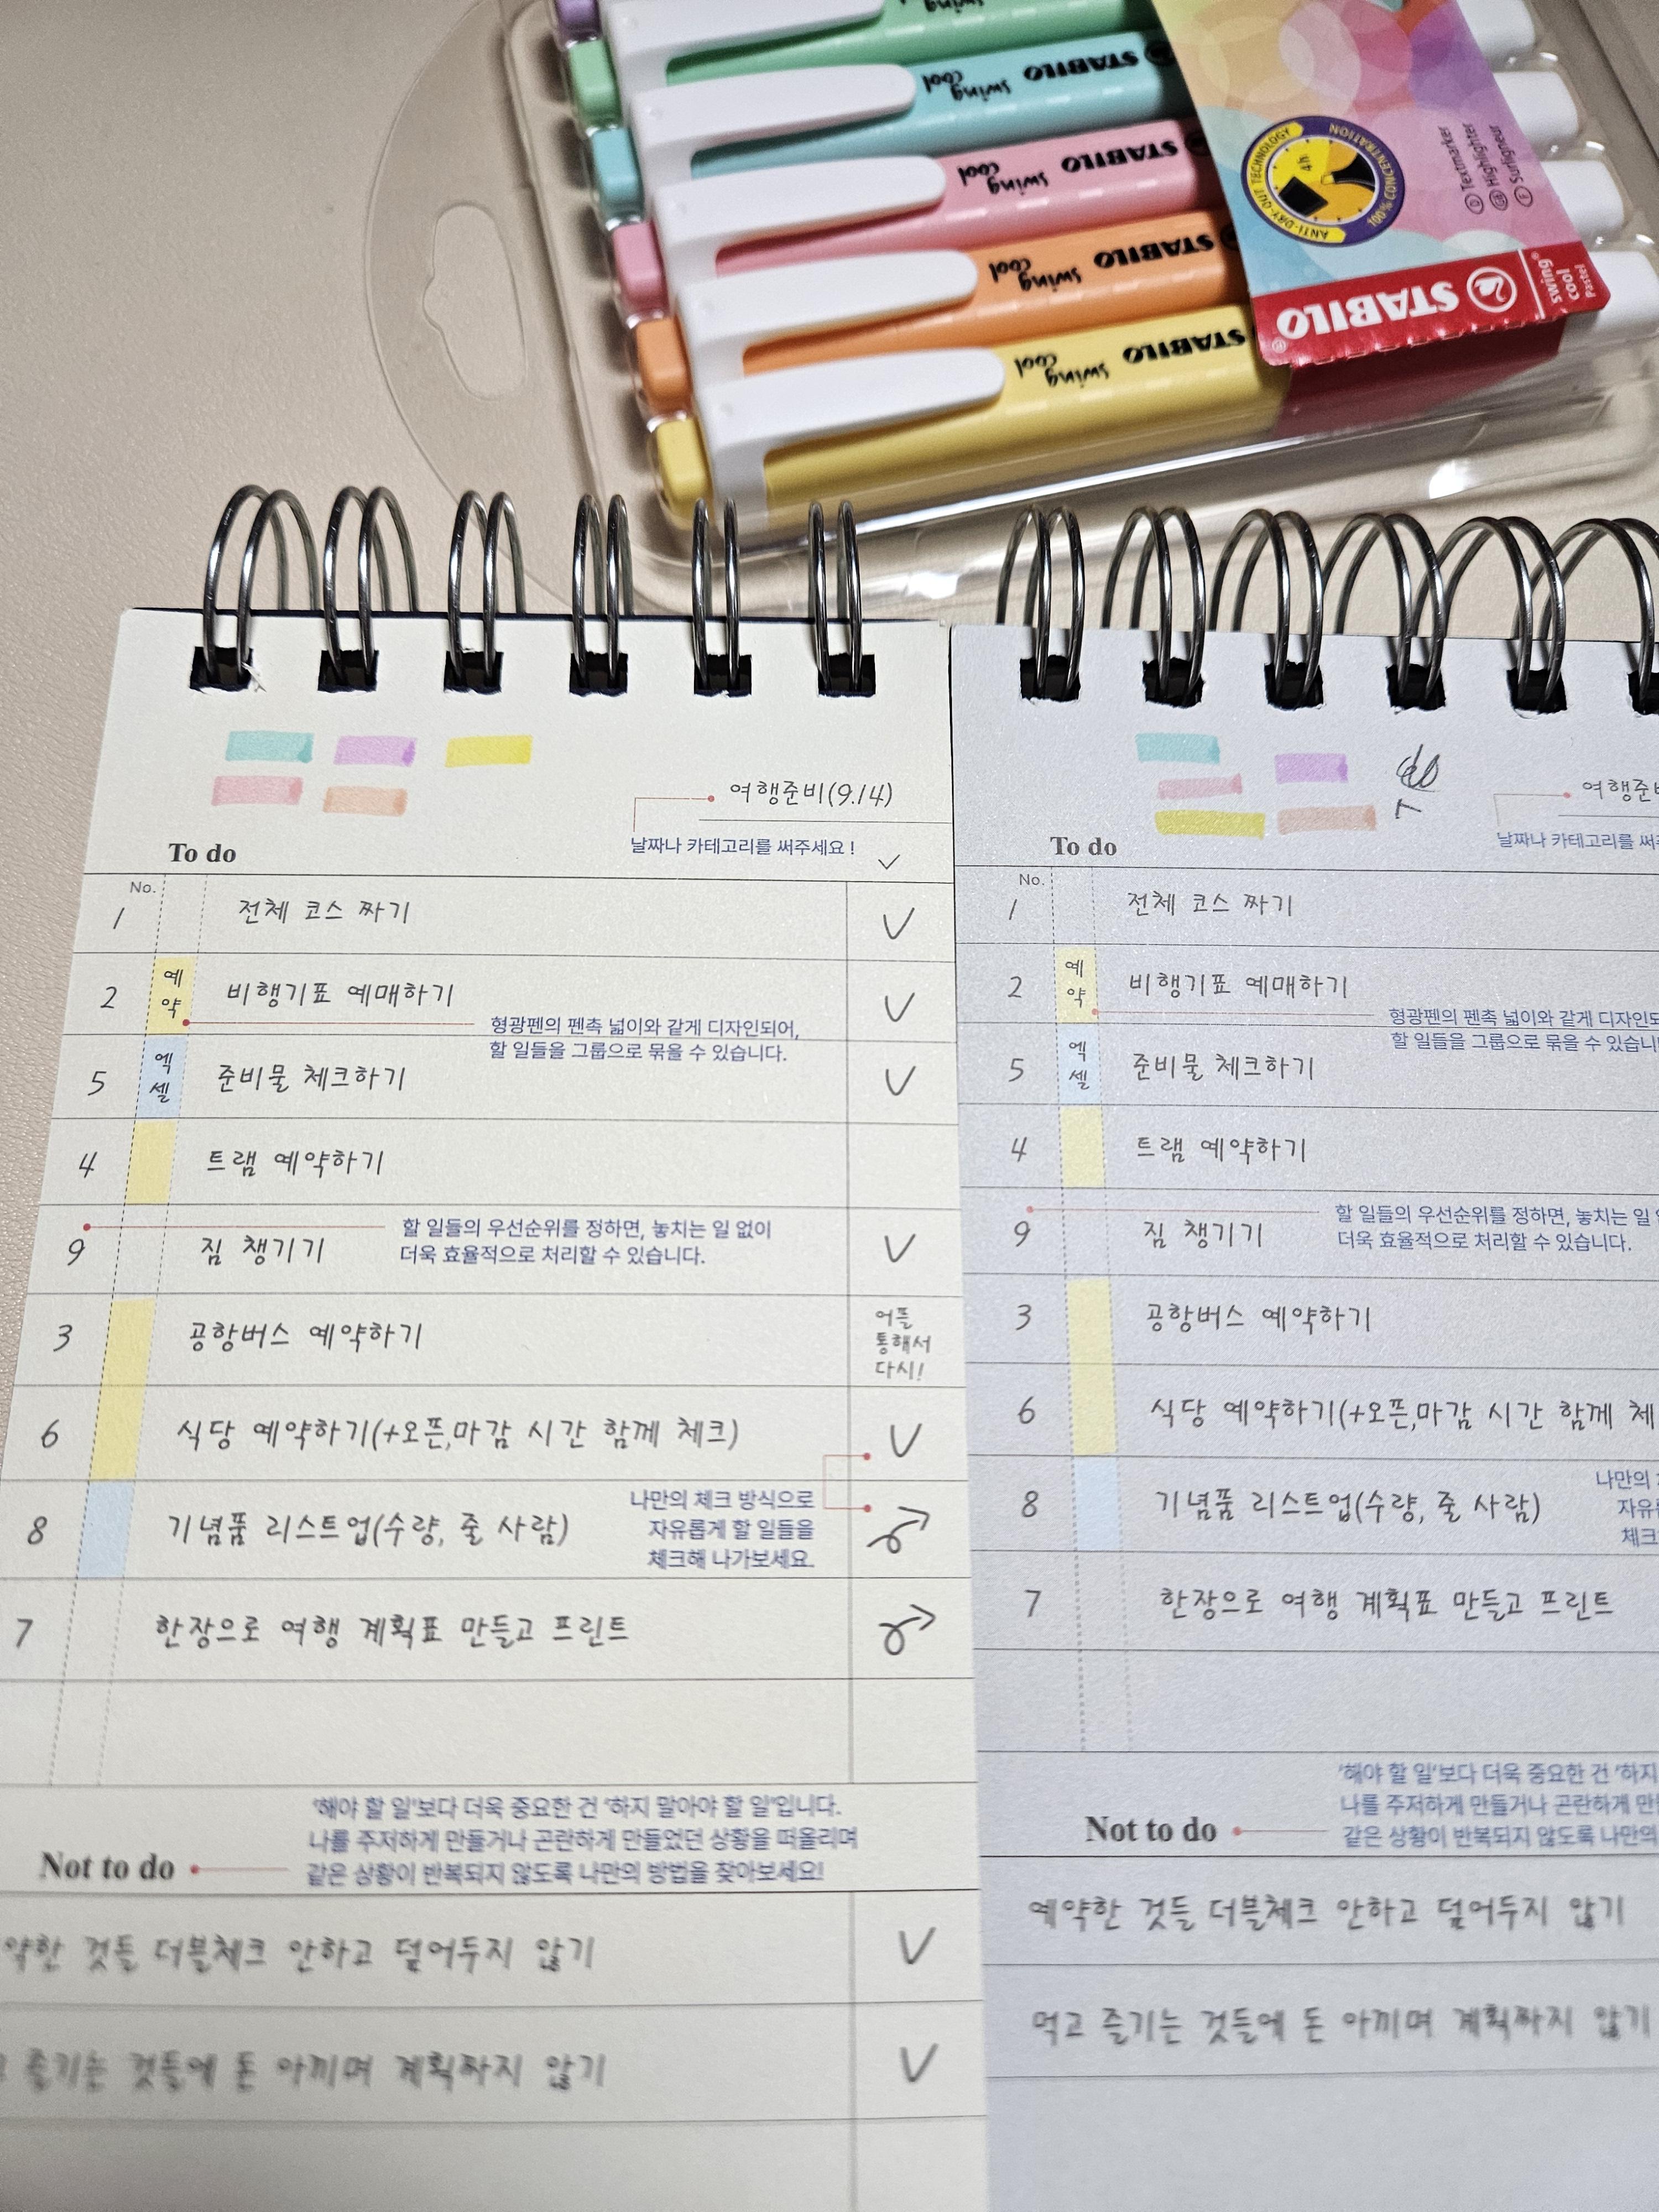 swing cool
STABILO
swing cool STABILO
swing cool STABILO
swing cool STABILO
swing cool STABILO
ANTI-DRY-OUT TECHNOLOGY
100% CONCENTRATION
4h
D Textmarker
GB Highlighter
F Surligneur
STABILO®
swing®
cool
Pastel
여행준비(9.14)
날짜나 카테고리를 써주세요 !
To do
No.
1 전체 코스 짜기
2 예약 비행기표 예매하기
형광펜의 펜촉 넓이와 같게 디자인되어,
할 일들을 그룹으로 묶을 수 있습니다.
5 엑셀 준비물 체크하기
4 트램 예약하기
할 일들의 우선순위를 정하면, 놓치는 일 없이
더욱 효율적으로 처리할 수 있습니다.
9 짐 챙기기
3 공항버스 예약하기
어플
통해서
다시!
6 식당 예약하기(+오픈,마감 시간 함께 체크)
나만의 체크 방식으로
자유롭게 할 일들을
체크해 나가보세요.
8 기념품 리스트업(수량, 줄 사람)
7 한장으로 여행 계획표 만들고 프린트
'해야 할 일'보다 더욱 중요한 건 '하지 말아야 할 일'입니다.
나를 주저하게 만들거나 곤란하게 만들었던 상황을 떠올리며
같은 상황이 반복되지 않도록 나만의 방법을 찾아보세요!
Not to do
약한 것들 더블체크 안하고 덮어두지 않기
즐기는 것들에 돈 아끼며 계획짜지 않기
여행준비
날짜나 카테고리를 써
To do
No.
1 전체 코스 짜기
2 예약 비행기표 예매하기
형광펜의 펜촉 넓이와 같게 디자인되
할 일들을 그룹으로 묶을 수 있습니
5 엑셀 준비물 체크하기
4 트램 예약하기
할 일들의 우선순위를 정하면, 놓치는 일
더욱 효율적으로 처리할 수 있습니다.
9 짐 챙기기
3 공항버스 예약하기
6 식당 예약하기(+오픈,마감 시간 함께 체
나만의
자유롭
체크
8 기념품 리스트업(수량, 줄 사람)
7 한장으로 여행 계획표 만들고 프린트
'해야 할 일'보다 더욱 중요한 건 '하지
나를 주저하게 만들거나 곤란하게 만
같은 상황이 반복되지 않도록 나만의
Not to do
예약한 것들 더블체크 안하고 덮어두지 않기
먹고 즐기는 것들에 돈 아끼며 계획짜지 않기